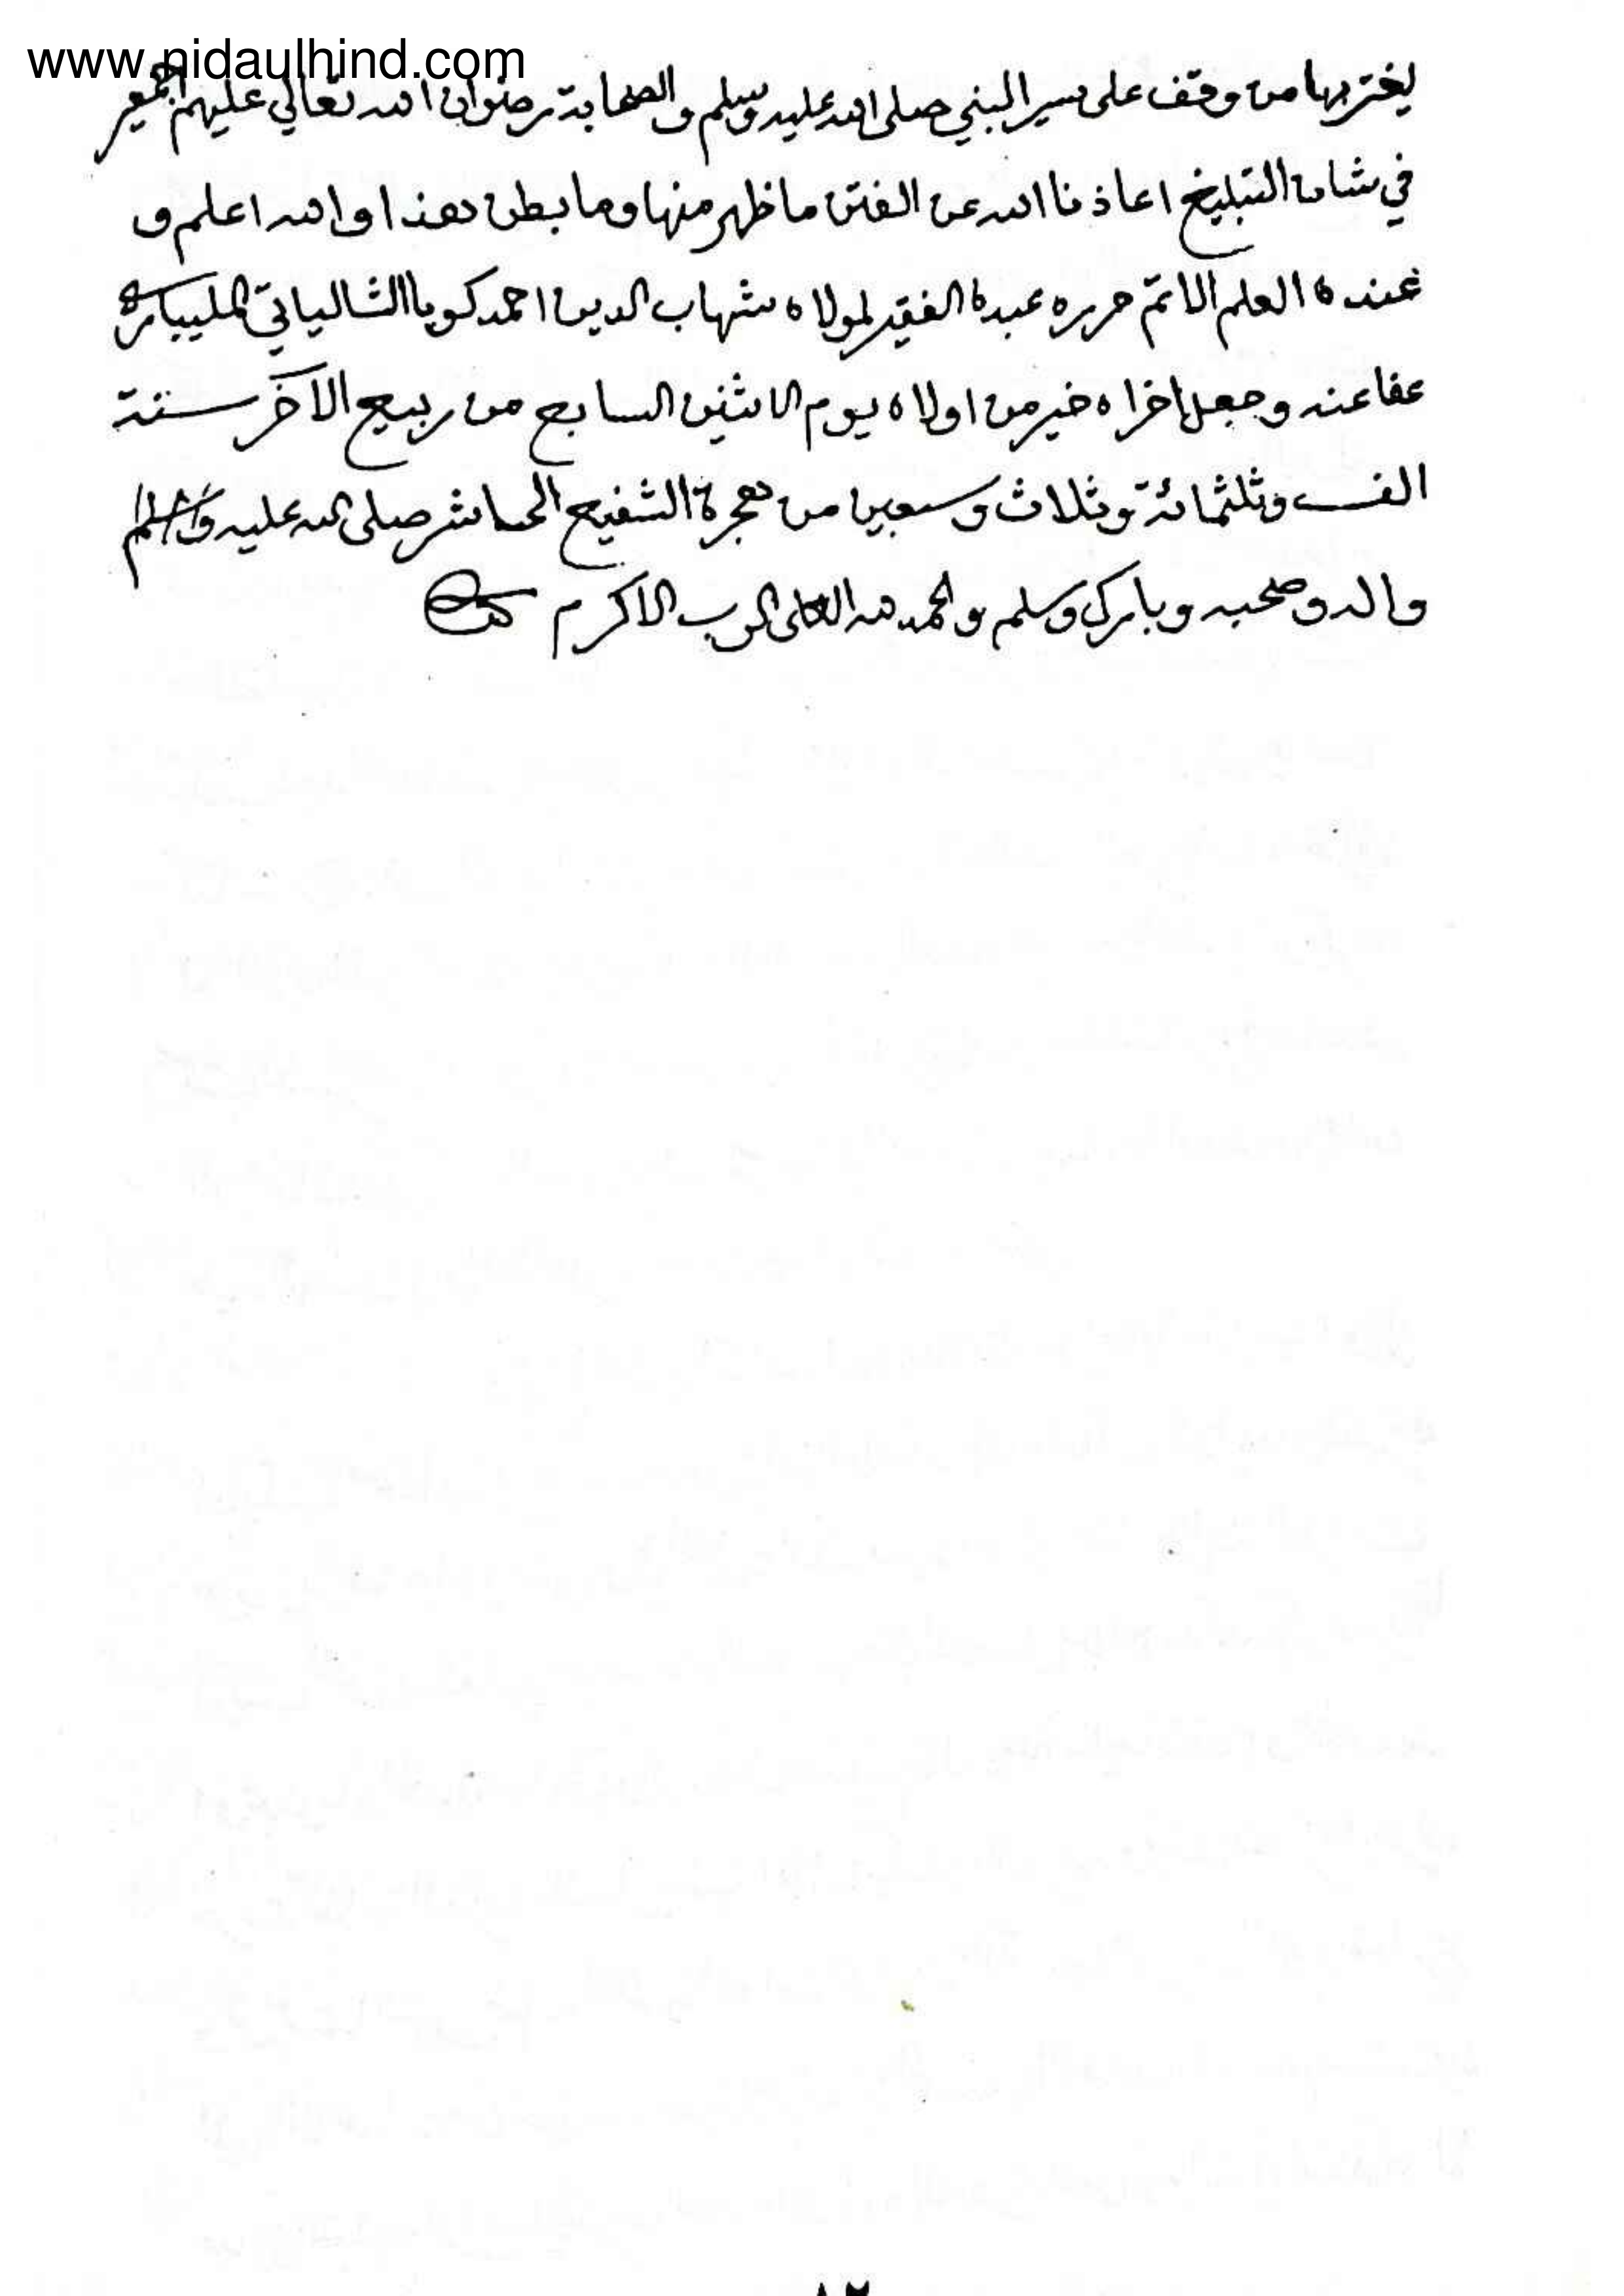 www.nidaulhind.com
يغتر بها من وقف على سير النبي صلى الله عليه وسلم والصحابة رضوان الله تعالي عليهم اجمعين
في شان التبليغ اعاذنا الله عن الفتن ما ظهر منها وما بطن هذا والله اعلم و
عنده العلم الاتم حرره عبده الفقير لمولاه شهاب الدين احمد كويا الشالياتي المليباري
عفا عنه وجعل اخراه خير من اولاه يوم الاثنين السابع من ربيع الآخر سنة
الف وثلثمائة وثلاث وسبعين من هجرة الشفيع الحاشر صلى الله عليه
واله وصحبه وبارك وسلم والحمد لله العلى الرب الاكرم
٨٢